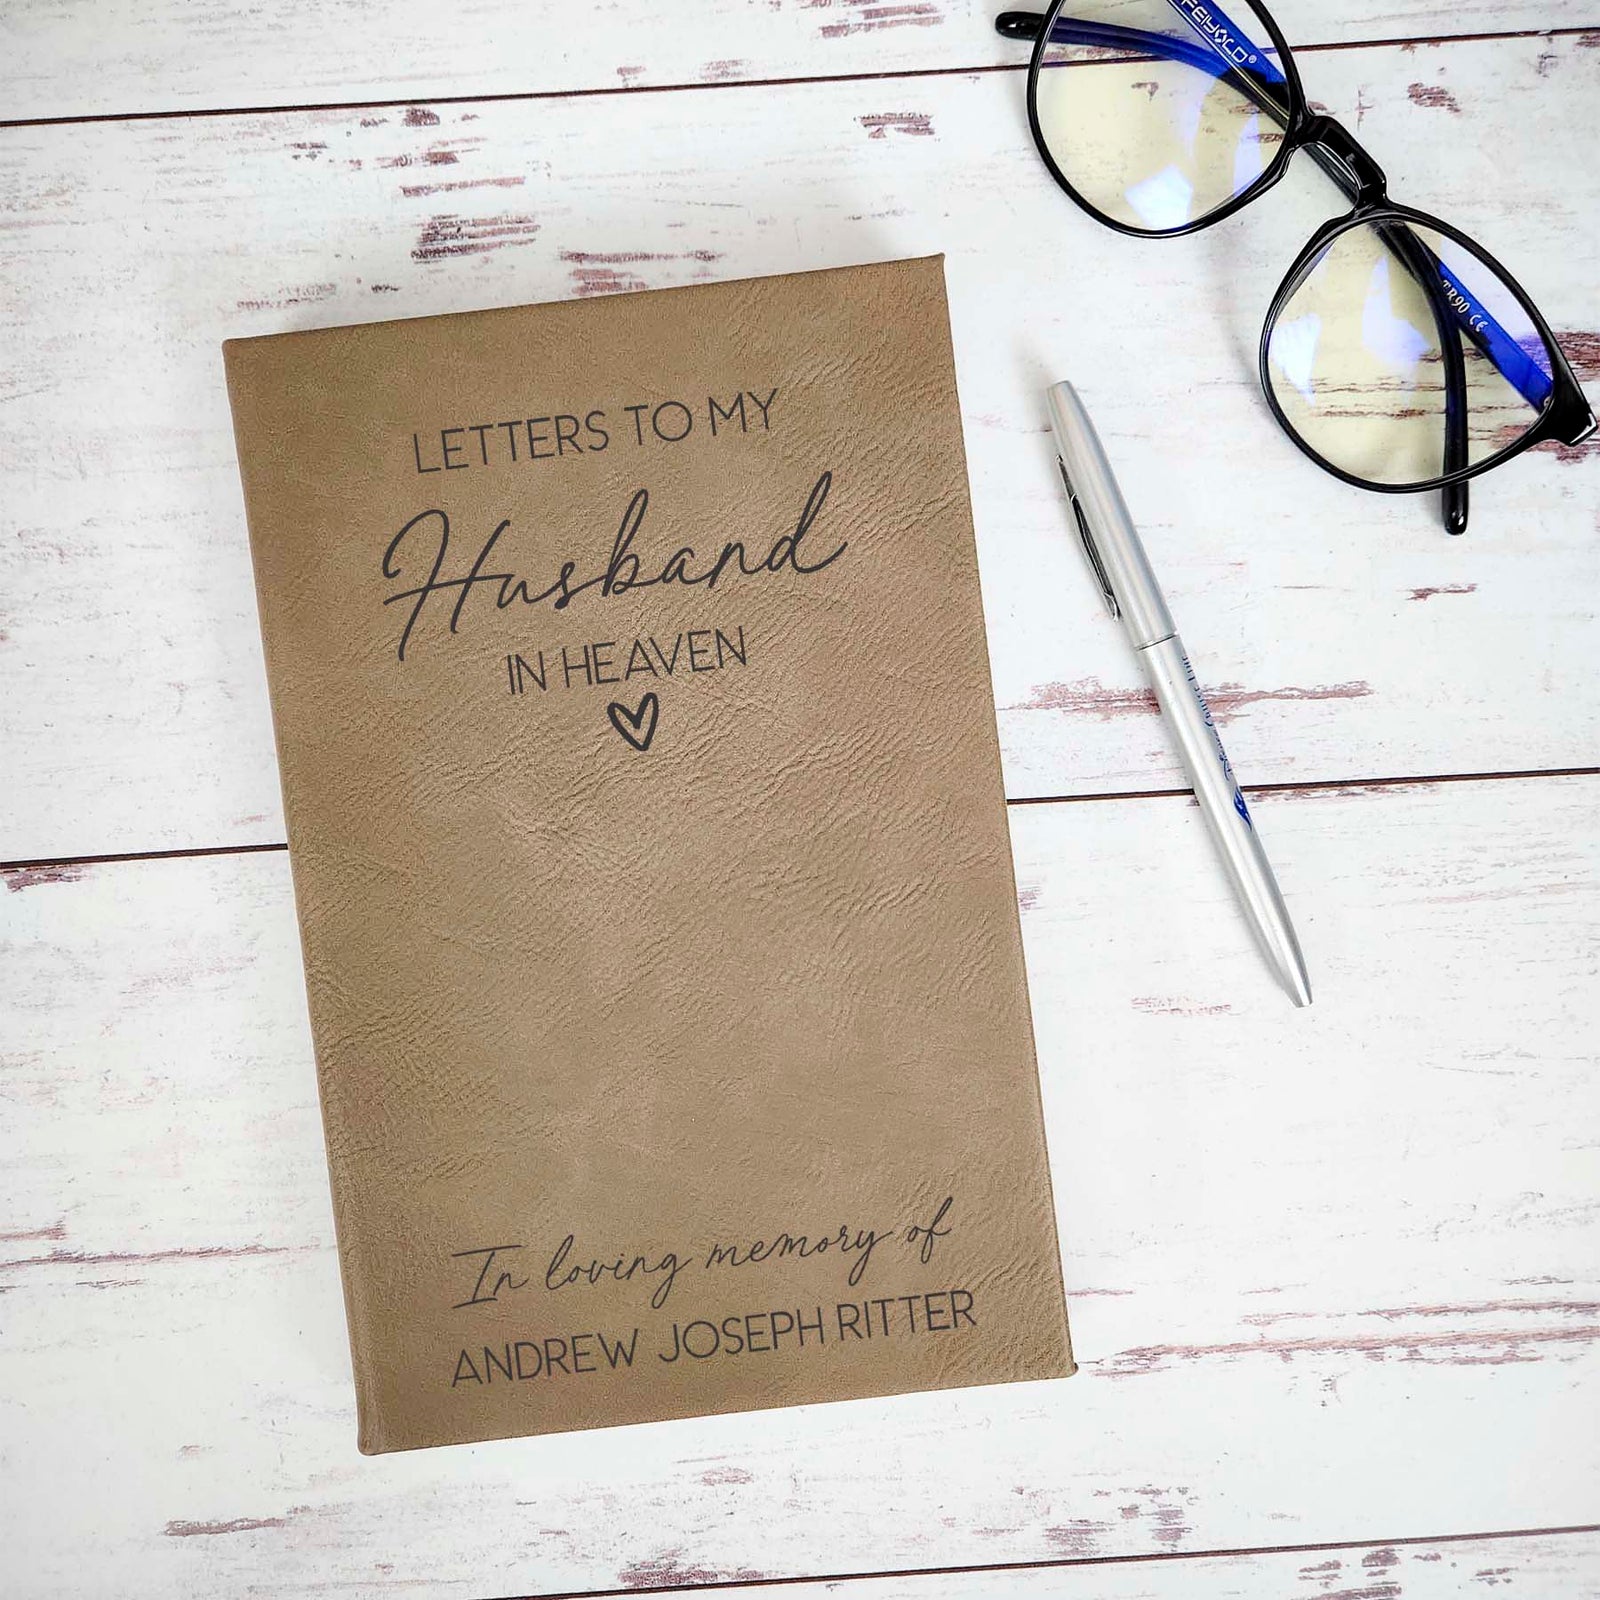 LETTERS TO MY
Husband
IN HEAVEN
In loving memory of
ANDREW JOSEPH RITTER
FEIYOLD®
TR90 CE